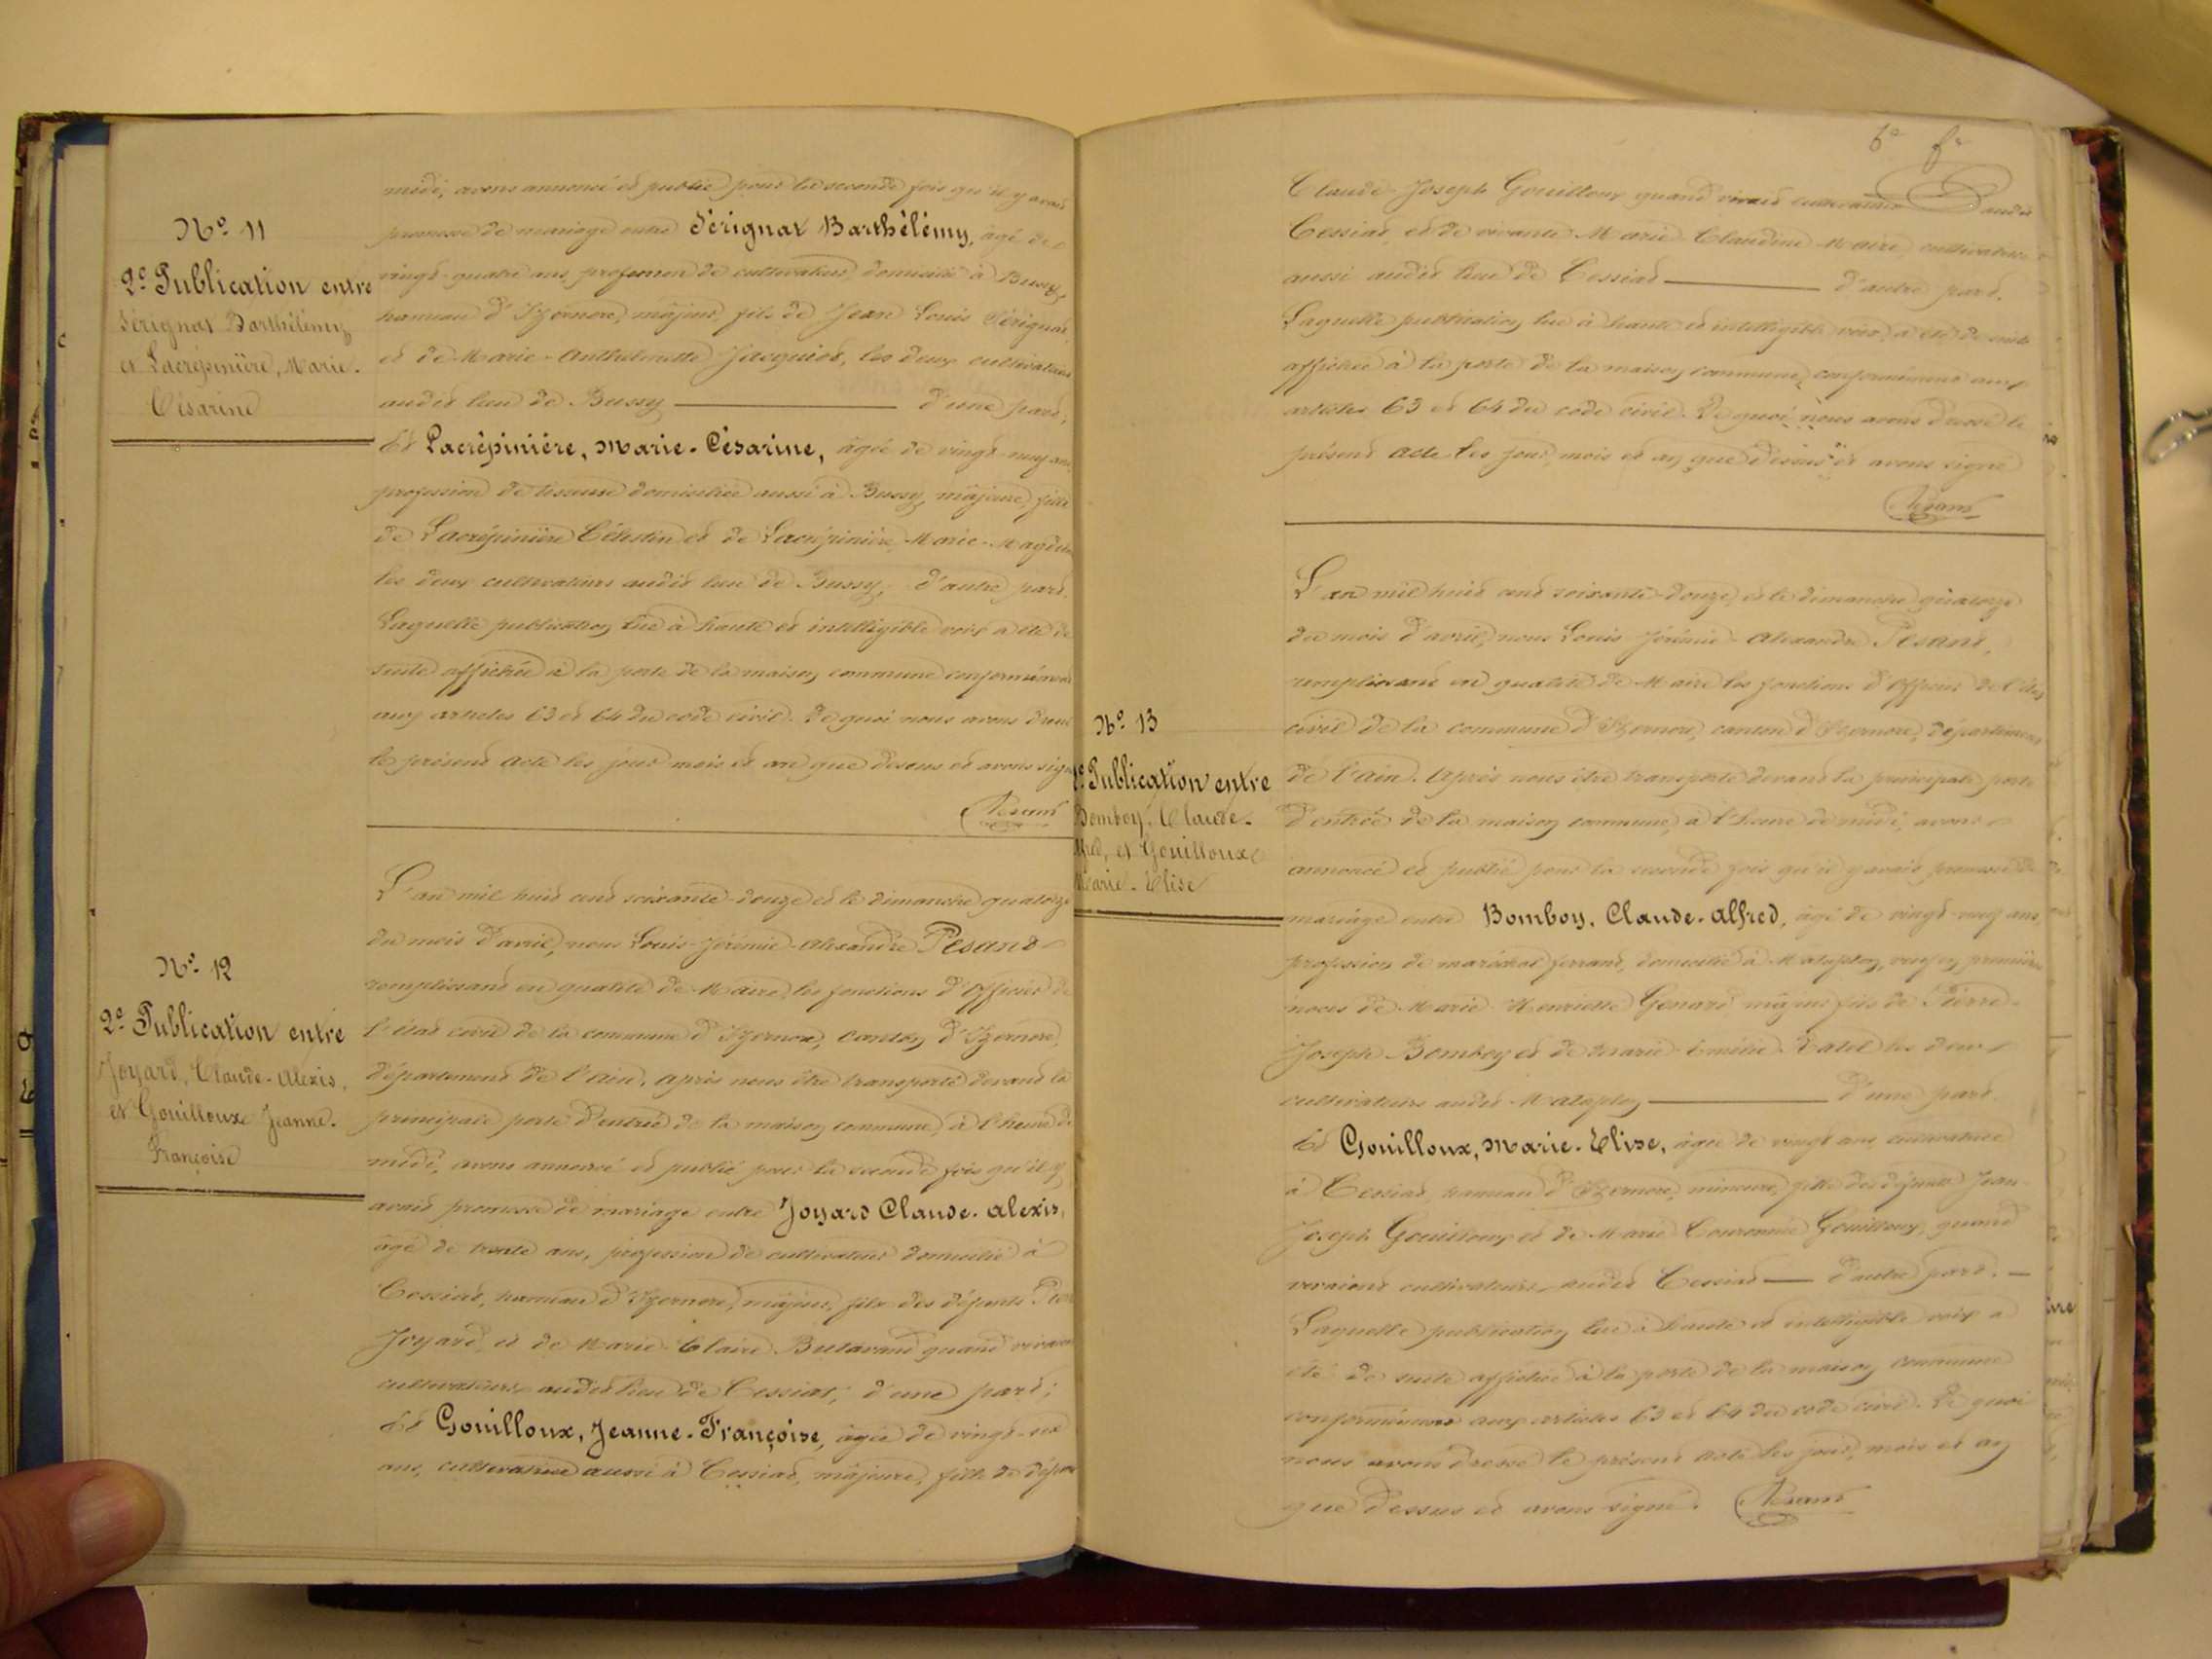 midi, avons annoncé et publié pour la seconde fois qu'il y avait
promesse de mariage entre Sérignat Barthélémy, âgé de
vingt-quatre ans, profession de cultivateur, domicilié à Bussy,
hameau d'Izernore, majeur, fils de Jean Louis Sérignat,
et de Marie-Anthelmette Jacquiot, les deux cultivateurs
audit lieu de Bussy d'une part;
Et Lacrépinière, Marie-Césarine, âgée de vingt-neuf ans,
profession de tisseuse domiciliée aussi à Bussy, majeure, fille
de Lacrépinière Célestin et de Lacrépinière, Marie-
les deux cultivateurs audit lieu de Bussy, d'autre part.
Laquelle publication lue à haute et intelligible voix a été de
suite affichée à la porte de la maison commune conformément
aux articles 63 et 64 du code civil. De quoi nous avons
le présent acte les jour mois et an que dessus et avons
Pesant
No. 11
2e. Publication entre
Sérignat Barthélémy
et Lacrépinière, Marie-
Césarine
L'an mil huit cent soixante-douze et le dimanche quatorze
du mois d'avril, nous Louis-Jérémie-Alexandre Pesant
remplissant en qualité de Maire, les fonctions d'Officier de
l'état civil de la commune d'Izernore, canton d'Izernore,
département de l'Ain. Après nous être transporté devant la
principale porte d'entrée de la maison commune, à l'heure de
midi, avons annoncé et publié pour la seconde fois qu'il y
avait promesse de mariage entre Joyard Claude-Alexis,
âgé de trente ans, profession de cultivateur domicilié à
Cessiat, hameau d'Izernore, majeur, fils des défunts
Joyard, et de Marie-Claire Butavand quand
cultivateurs audit lieu de Cessiat; d'une part;
Et Gouilloux, Jeanne-Françoise, âgée de vingt-six
ans, cultivatrice aussi à Cessiat, majeure, fille de
No. 12
2e. Publication entre
Joyard, Claude-Alexis,
et Gouilloux Jeanne-
Françoise
6e fo
Claude-Joseph Gouilloux quand vivait cultivateur audit
Cessiat, et de vivante Marie Claudine Maire, cultivatrice
aussi audit lieu de Cessiat d'autre part.
Laquelle publication lue à haute et intelligible voix, a été de suite
affichée à la porte de la maison commune, conformément aux
articles 63 et 64 du code civil. De quoi nous avons dressé le
présent acte les jour, mois et an que dessus et avons signé
Pesant
L'an mil huit cent soixante-douze, et le dimanche quatorze
du mois d'avril, nous Louis Jérémie-Alexandre Pesant,
remplissant en qualité de Maire les fonctions d'Officier de l'état
civil de la commune d'Izernore, canton d'Izernore, département
de l'Ain. Après nous être transporté devant la principale porte
d'entrée de la maison commune, à l'heure de midi, avons
annoncé et publié pour la seconde fois qu'il y avait promesse de
mariage entre Bomboy, Claude-Alfred, âgé de vingt-neuf ans,
profession de maréchal ferrant, domicilié à Matafelon, veuf en premières
noces de Marie-Henriette Genard majeur fils de Pierre-
Joseph Bomboy et de Marie-Emélie Ratel les deux
cultivateurs audit Matafelon d'une part.
Et Gouilloux, Marie-Elise, âgée de vingt ans, cultivatrice
à Cessiat, hameau d'Izernore, mineure, fille des défunts Jean-
Joseph Gouilloux et de Marie Couronnée Gouilloux, quand
vivaient cultivateurs audit Cessiat d'autre part.
Laquelle publication lue à haute et intelligible voix a
été de suite affichée à la porte de la maison commune
conformément aux articles 63 et 64 du code civil. De quoi
nous avons dressé le présent acte les jour, mois et an
que dessus et avons signé. Pesant
No. 13
Publication entre
Bomboy, Claude-
et Gouilloux
Marie-Elise